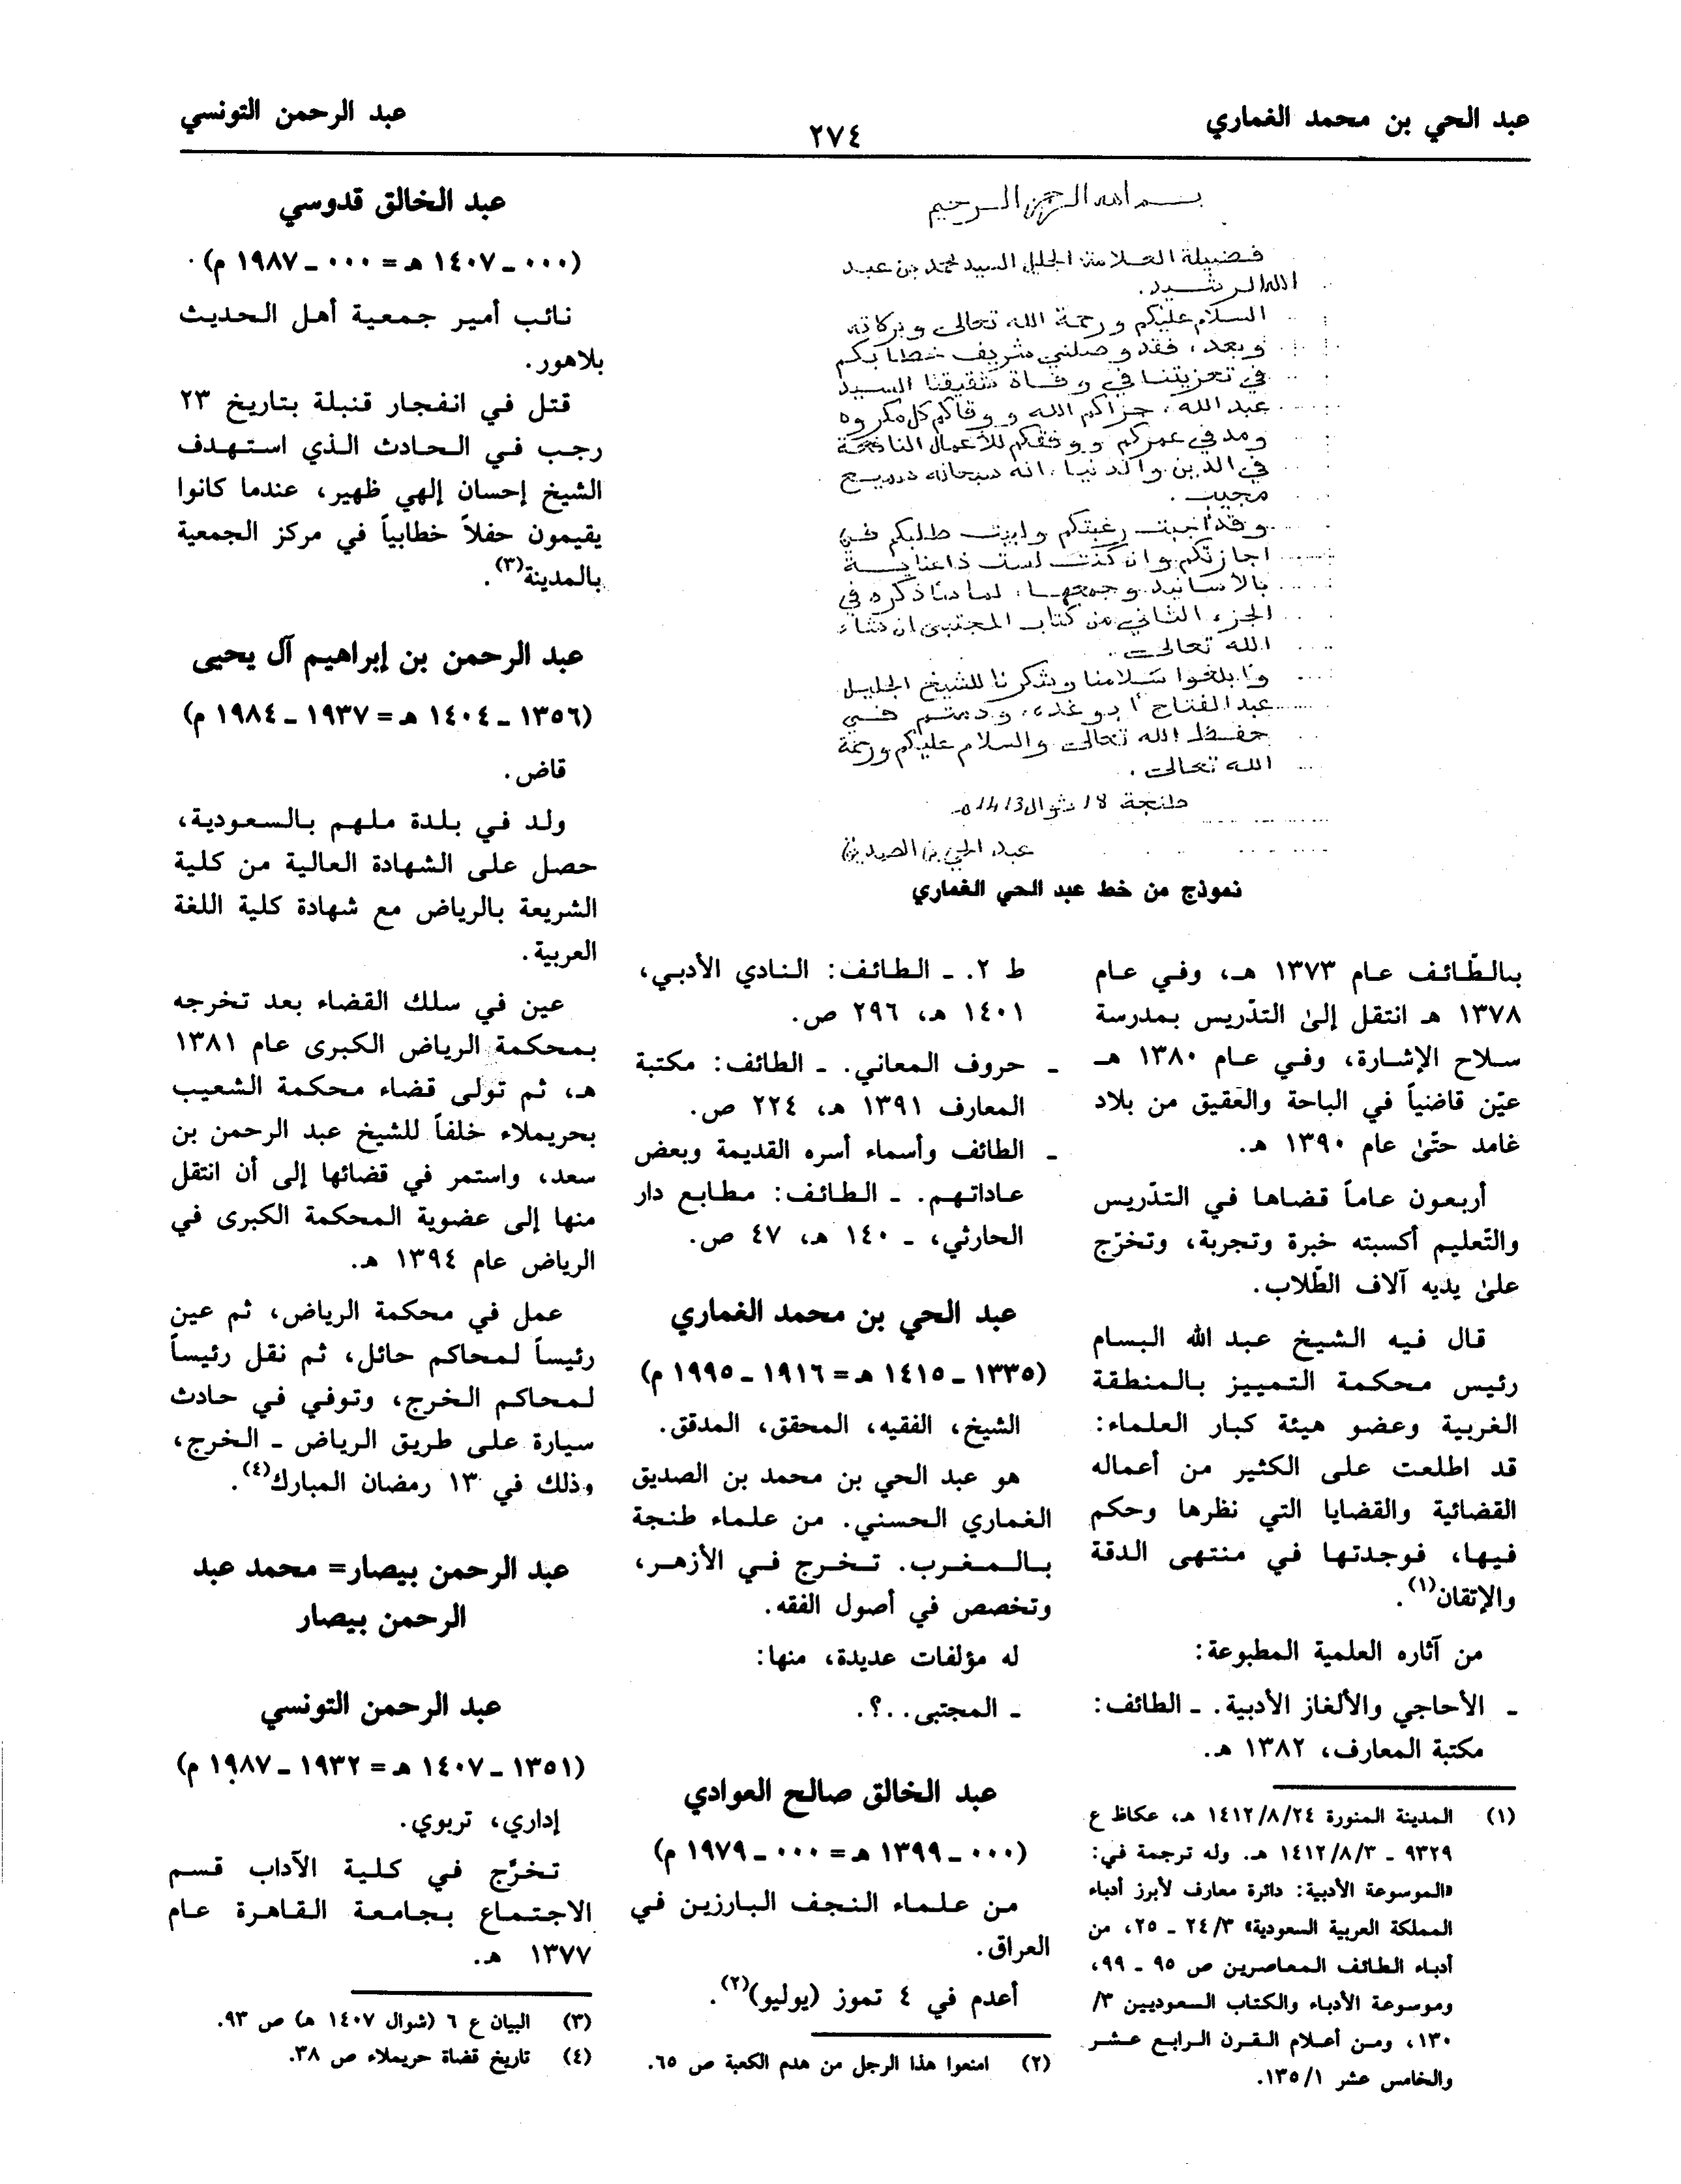 عبد الحي بن محمد الغماري
٢٧٤
عبد الرحمن التونسي
بسم الله الرحمن الرحيم
فضيلة العلامة الجليل السيد محمد بن عبد
الله الرشيد.
السلام عليكم ورحمة الله تعالى وبركاته
وبعد، فقد وصلني شريف خطابكم
في تعزيتنا في وفاة شقيقنا السيد
عبد الله، جزاكم الله ووقاكم كل مكروه
ومد في عمركم ووفقكم للأعمال النافعة
في الدين والدنيا، انه سبحانه سميع
مجيب.
وقد أجبت رغبتكم ولبيت طلبكم في
اجازتكم وان كنت لست ذا عناية
بالأسانيد وجمعها، لما سأذكره في
الجزء الثاني من كتاب المجتبى ان شاء
الله تعالى.
وأبلغوا سلامنا وشكرنا للشيخ الجليل
عبد الفتاح أبو غدة، ودمتم في
حفظ الله تعالى والسلام عليكم ورحمة
الله تعالى.
طنجة 18 شوال 1413 هـ
عبد الحي بن الصديق
نموذج من خط عبد الحي الغماري
بالطّائف عام ١٣٧٣ هـ، وفي عام
١٣٧٨ هـ انتقل إلىٰ التدّريس بمدرسة
سلاح الإشارة، وفي عام ١٣٨٠ هـ
عيّن قاضياً في الباحة والعقيق من بلاد
غامد حتّىٰ عام ١٣٩٠ هـ.
أربعون عاماً قضاها في التدّريس
والتّعليم أكسبته خبرة وتجربة، وتخرّج
علىٰ يديه آلاف الطّلاب.
قال فيه الشيخ عبد الله البسام
رئيس محكمة التمييز بالمنطقة
الغربية وعضو هيئة كبار العلماء:
قد اطلعت على الكثير من أعماله
القضائية والقضايا التي نظرها وحكم
فيها، فوجدتها في منتهى الدقة
والإتقان(١).
من آثاره العلمية المطبوعة:
ـ الأحاجي والألغاز الأدبية. ـ الطائف:
مكتبة المعارف، ١٣٨٢ هـ.
(١) المدينة المنورة ١٤١٢/٨/٢٤ هـ، عكاظ ع
٩٣٢٩ ـ ١٤١٢/٨/٣ هـ. وله ترجمة في:
«الموسوعة الأدبية: دائرة معارف لأبرز أدباء
المملكة العربية السعودية» ٢٤/٣ ـ ٢٥، من
أدباء الطائف المعاصرين ص ٩٥ ـ ٩٩،
وموسوعة الأدباء والكتاب السعوديين ٣/
١٣٠، ومن أعلام القرن الرابع عشر
والخامس عشر ١٣٥/١.
ط ٢. ـ الطائف: النادي الأدبي،
١٤٠١ هـ، ٢٩٦ ص.
ـ حروف المعاني. ـ الطائف: مكتبة
المعارف ١٣٩١ هـ، ٢٢٤ ص.
ـ الطائف وأسماء أسره القديمة وبعض
عاداتهم. ـ الطائف: مطابع دار
الحارثي، ـ ١٤٠ هـ، ٤٧ ص.
عبد الحي بن محمد الغماري
(١٣٣٥ ـ ١٤١٥ هـ = ١٩١٦ ـ ١٩٩٥ م)
الشيخ، الفقيه، المحقق، المدقق.
هو عبد الحي بن محمد بن الصديق
الغماري الحسني. من علماء طنجة
بالمغرب. تخرج في الأزهر،
وتخصص في أصول الفقه.
له مؤلفات عديدة، منها:
ـ المجتبى..؟.
عبد الخالق صالح العوادي
(٠٠٠ ـ ١٣٩٩ هـ = ٠٠٠ ـ ١٩٧٩ م)
من علماء النجف البارزين في
العراق.
أعدم في ٤ تموز (يوليو)(٢).
(٢) امنعوا هذا الرجل من هدم الكعبة ص ٦٥.
عبد الخالق قدوسي
(٠٠٠ ـ ١٤٠٧ هـ = ٠٠٠ ـ ١٩٨٧ م)
نائب أمير جمعية أهل الحديث
بلاهور.
قتل في انفجار قنبلة بتاريخ ٢٣
رجب في الحادث الذي استهدف
الشيخ إحسان إلهي ظهير، عندما كانوا
يقيمون حفلاً خطابياً في مركز الجمعية
بالمدينة(٣).
عبد الرحمن بن إبراهيم آل يحيى
(١٣٥٦ ـ ١٤٠٤ هـ = ١٩٣٧ ـ ١٩٨٤ م)
قاض.
ولد في بلدة ملهم بالسعودية،
حصل على الشهادة العالية من كلية
الشريعة بالرياض مع شهادة كلية اللغة
العربية.
عين في سلك القضاء بعد تخرجه
بمحكمة الرياض الكبرى عام ١٣٨١
هـ، ثم تولى قضاء محكمة الشعيب
بحريملاء خلفاً للشيخ عبد الرحمن بن
سعد، واستمر في قضائها إلى أن انتقل
منها إلى عضوية المحكمة الكبرى في
الرياض عام ١٣٩٤ هـ.
عمل في محكمة الرياض، ثم عين
رئيساً لمحاكم حائل، ثم نقل رئيساً
لمحاكم الخرج، وتوفي في حادث
سيارة على طريق الرياض ـ الخرج،
وذلك في ١٣ رمضان المبارك(٤).
عبد الرحمن بيصار= محمد عبد
الرحمن بيصار
عبد الرحمن التونسي
(١٣٥١ ـ ١٤٠٧ هـ = ١٩٣٢ ـ ١٩٨٧ م)
إداري، تربوي.
تخرَّج في كلية الآداب قسم
الاجتماع بجامعة القاهرة عام
١٣٧٧ هـ.
(٣) البيان ع ٦ (شوال ١٤٠٧ هـ) ص ٩٣.
(٤) تاريخ قضاة حريملاء ص ٣٨.